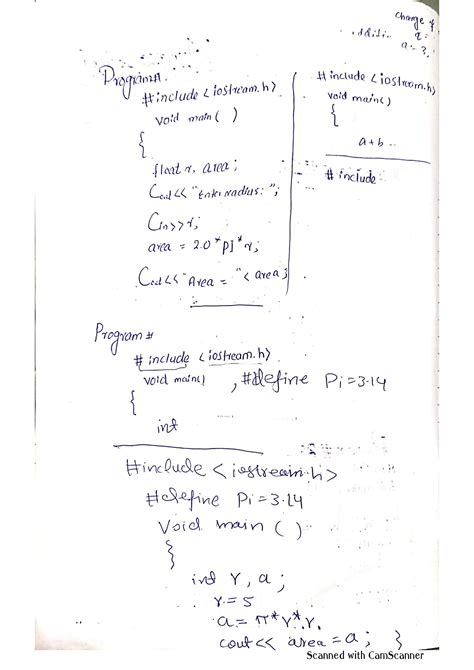 change of
additi..
a = 3,
Program#
#include <iostream.h)
void main( )
{
float r, area ;
Cout<< "Enter radius: ";
Cin>>r;
area = 2.0*PI*r;
Cout<<"Area = "< area;
#include <iostream.h)
void main()
{
a+b
#include
Program #
#include <iostream.h)
void main() , #define Pi = 3.14
{
int
#include <iostream.h>
#define Pi = 3.14
Void main ( )
{
int r, a ;
r = 5
a = π*r*r.
cout<< area = a; }
Scanned with CamScanner